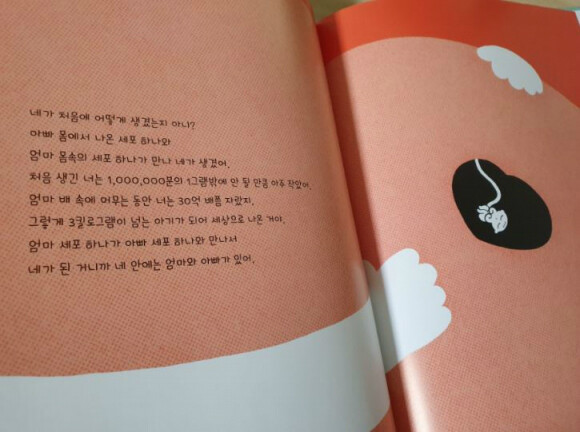 네가 처음에 어떻게 생겼는지 아니?
아빠 몸에서 나온 세포 하나와
엄마 몸속의 세포 하나가 만나 네가 생겼어.
처음 생긴 너는 1,000,000분의 1그램밖에 안 될 만큼 아주 작았어.
엄마 배 속에 머무는 동안 너는 30억 배쯤 자랐지.
그렇게 3킬로그램이 넘는 아기가 되어 세상으로 나온 거야.
엄마 세포 하나가 아빠 세포 하나와 만나서
네가 된 거니까 네 안에는 엄마와 아빠가 있어.